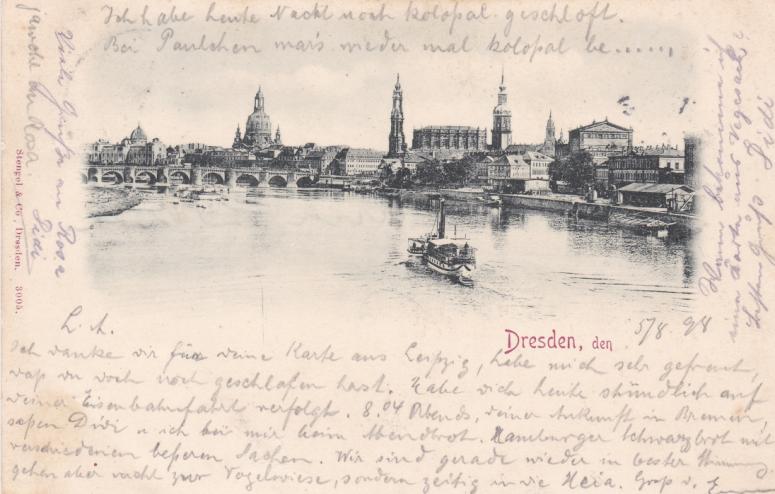 Ich habe heute Nacht noch kolossal geschlafen.
Bei Paulchen war's wieder mal kolossal be......,
Viele Grüße an Rosa
Didi
Stengel & Co., Dresden. 3005.
Wann bekomme ich
eine Karte aus Vegesack?
Besten Gruß Didi
Dresden, den 5/8 98
L. A.
Ich danke dir für deine Karte aus Leipzig, habe mich sehr gefreut,
daß du doch noch geschlafen hast. Habe dich heute stündlich auf
deiner Eisenbahnfahrt verfolgt. 8.04 Abends, deiner Ankunft in Bremen,
saßen Didi u ich bei mir beim Abendbrot. Hamburger Schwarzbrot mit
verschiedenen besseren Sachen. Wir sind gerade wieder in bester Stimmung
gehen aber nicht zur Vogelwiese, sondern zeitig in die Heia. Gruß d.